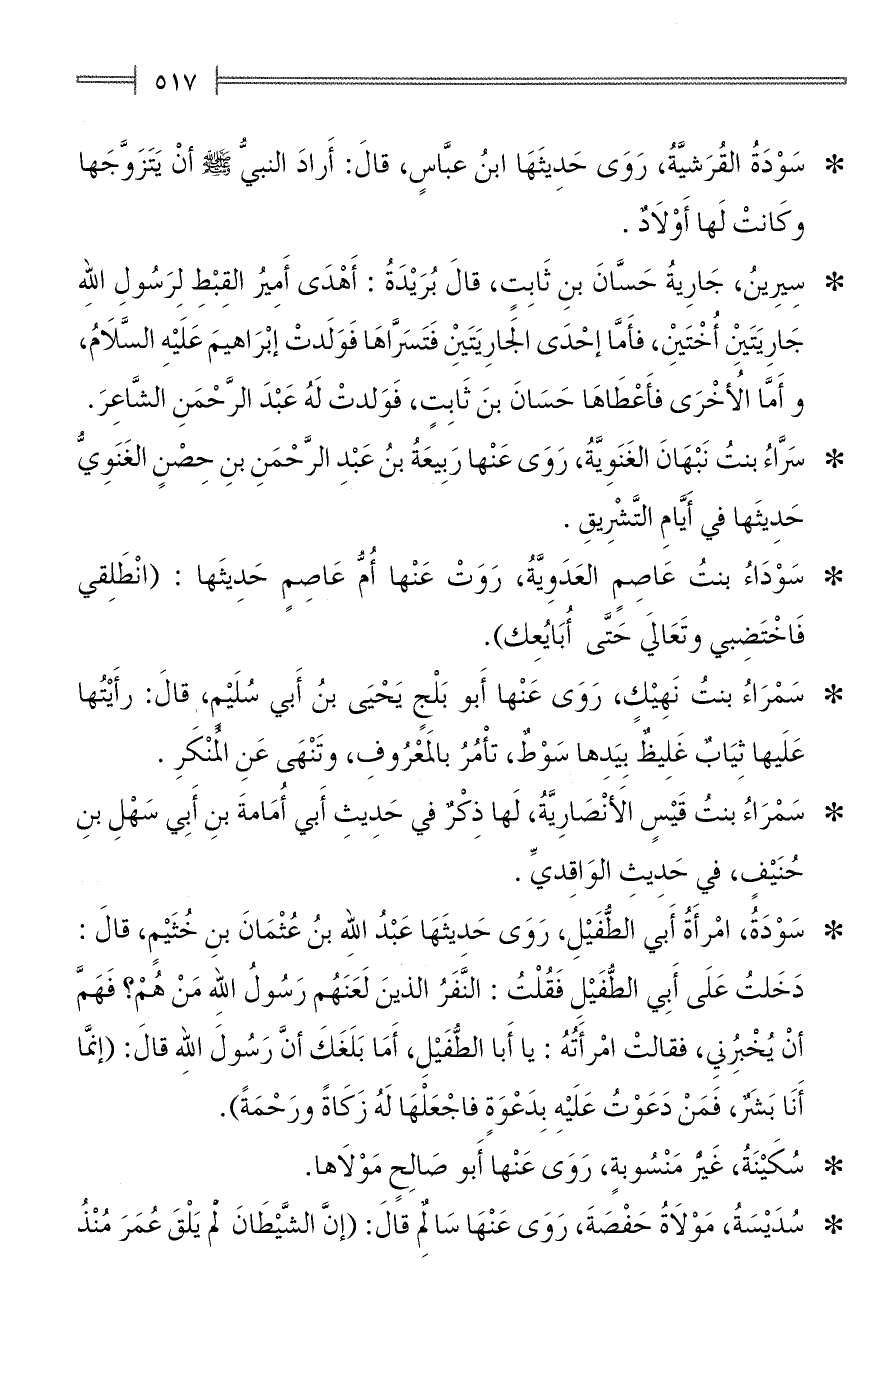 ٥١٧
* سَوْدَةُ القُرَشيَّةُ، رَوَى حَدِيثَهَا ابنُ عبَّاسٍ، قالَ: أَرادَ النبيُّ ﷺ أنْ يَتَزَوَّجَها
وكَانتْ لَها أَوْلَادٌ .
* سِيرِينُ، جَارِيةُ حَسَّانَ بنِ ثَابتٍ، قالَ بُرَيْدَةُ : أَهْدَى أَمِيرُ القِبْطِ لِرَسُولِ اللهِ
جَارِيَتَيْنِ أُخْتَيْنِ، فأَمَّا إحْدَى الجَارِيَتَيْنِ فَتَسَرَّاهَا فَوَلَدتْ إبْرَاهيمَ عَلَيْهِ السَّلَامُ،
و أمَّا الأُخْرَى فأَعْطَاهَا حَسَانَ بنَ ثَابتٍ، فَوَلدتْ لَهُ عَبْدَ الرَّحْمَنِ الشَّاعرَ.
* سَرَّاءُ بنتُ نَبْهَانَ الغَنَويَّةُ، رَوَى عَنْها رَبِيعَةُ بنُ عَبْدِ الرَّحْمَنِ بنِ حِصْنٍ الغَنَويُّ
حَدِيثَها في أَيَّامِ التَّشْرِيقِ .
* سَوْدَاءُ بنتُ عَاصِمٍ العَدَوِيَّةُ، رَوَتْ عَنْها أُمُّ عَاصِمٍ حَدِيثَها : (انْطَلِقي
فَاخْتَضِبي وتَعَالَي حَتَّى أُبَايُعك).
* سَمْرَاءُ بنتُ نَهِيْكٍ، رَوَى عَنْها أبو بَلْجٍ يَحْيَى بنُ أَبي سُلَيْمٍ، قالَ: رأَيْتُها
عَلَيها ثِيَابٌ غَلِيظٌ بِيَدِها سَوْطٌ، تأْمُرُ بالمَعْرُوفِ، وتَنْهَى عَنِ المُنْكَرِ .
* سَمْرَاءُ بنتُ قَيْسٍ الأَنْصَارِيَّةُ، لَها ذِكْرٌ في حَدِيثِ أَبي أُمَامةَ بنِ أَبي سَهْلِ بنِ
حُنَيْفٍ، في حَدِيثِ الوَاقِديِّ .
* سَوْدَةُ، امْرأَةُ أَبي الطُّفَيْلِ، رَوَى حَدِيثَهَا عَبْدُ اللهِ بنُ عُثْمَانَ بنِ خُثَيْمٍ، قالَ :
دَخَلتُ عَلَى أَبِي الطُّفَيْلِ فَقُلْتُ : النَّفَرُ الذينَ لَعَنَهُم رَسُولُ اللهِ مَنْ هُمْ؟ فَهَمَّ
أنْ يُخْبِرُني، فقالتْ امْرأَتُهُ : يا أبا الطُّفَيْلِ، أَمَا بَلَغَكَ أنَّ رَسُولَ اللهِ قالَ: (إنَّما
أَنَا بَشَرٌ، فَمَنْ دَعَوْتُ عَلَيْهِ بِدَعْوَةٍ فاجْعَلْهَا لَهُ زَكَاةً ورَحْمَةً).
* سُكَيْنَةُ، غَيْرُ مَنْسُوبةٍ، رَوَى عَنْها أبو صَالحٍ مَوْلَاها.
* سُدَيْسَةُ، مَوْلَاةُ حَفْصَةَ، رَوَى عَنْهَا سَالِمٌ قالَ: (إنَّ الشَّيْطَانَ لَمْ يَلْقَ عُمَرَ مُنْذُ